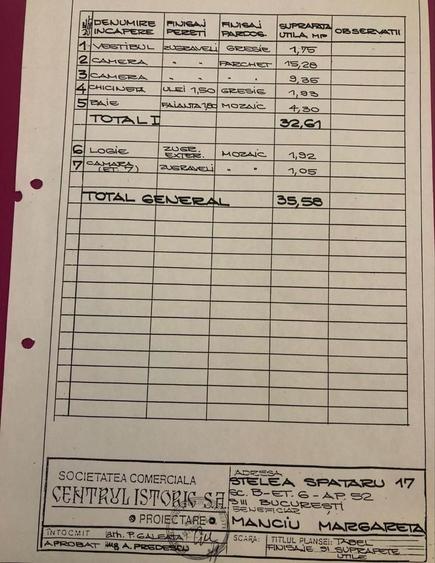 NR. CRT. DENUMIRE INCAPERE FINISAJ PERETI FINISAJ PARDOS. SUPRAFATA UTILA MP OBSERVATII
1 VESTIBUL ZUGRAVELI GRESIE 1,75
2 CAMERA " " PARCHET 15,28
3 CAMERA " " " " 9,35
4 CHICINETA ULEI 1,50 GRESIE 1,93
5 BAIE FAIANTA 1,80 MOZAIC 4,30
TOTAL I 32,61
6 LOGIE ZUGR. EXTER. MOZAIC 1,92
7 CAMARA (ET. 7) ZUGRAVELI " " 1,05
TOTAL GENERAL 35,58
SOCIETATEA COMERCIALA
CENTRUL ISTORIC S.A
PROIECTARE
ADRESA
STELEA SPATARU 17
SC. B - ET. 6 - AP. 52
S III BUCURESTI
BENEFICIAR
MANCIU MARGARETA
INTOCMIT arh. P. GALEATA
APROBAT ing A. PREDESCU
SCARA: TITLUL PLANSEI: TABEL
FINISAJE SI SUPRAFETE
UTILE